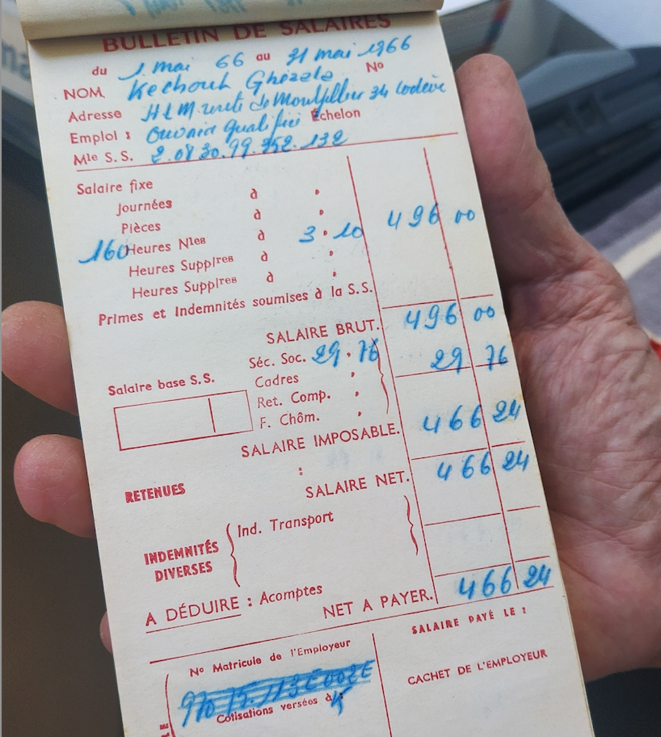 BULLETIN DE SALAIRES
du 1 mai 66 au 31 mai 1966
NOM Kechouh Ghezala No
Adresse H L M route de Montpellier 34 Lodève
Emploi : Ouvrière qualifiée Echelon
Mle S. S. 2.08 30.99.352.132
Salaire fixe
Journées à
Pièces à
160 Heures Nles à 3.10 496 00
Heures Suppires à
Heures Suppires à
Primes et Indemnités soumises à la S.S.
SALAIRE BRUT. 496 00
Séc. Soc. 29.76 29 76
Salaire base S.S.
Cadres
Ret. Comp.
F. Chôm.
SALAIRE IMPOSABLE. 466 24
:
RETENUES
SALAIRE NET. 466 24
Ind. Transport
INDEMNITÉS
DIVERSES
A DÉDUIRE : Acomptes
NET A PAYER. 466 24
No Matricule de l'Employeur
SALAIRE PAYÉ LE :
CACHET DE L'EMPLOYEUR
Cotisations versées à